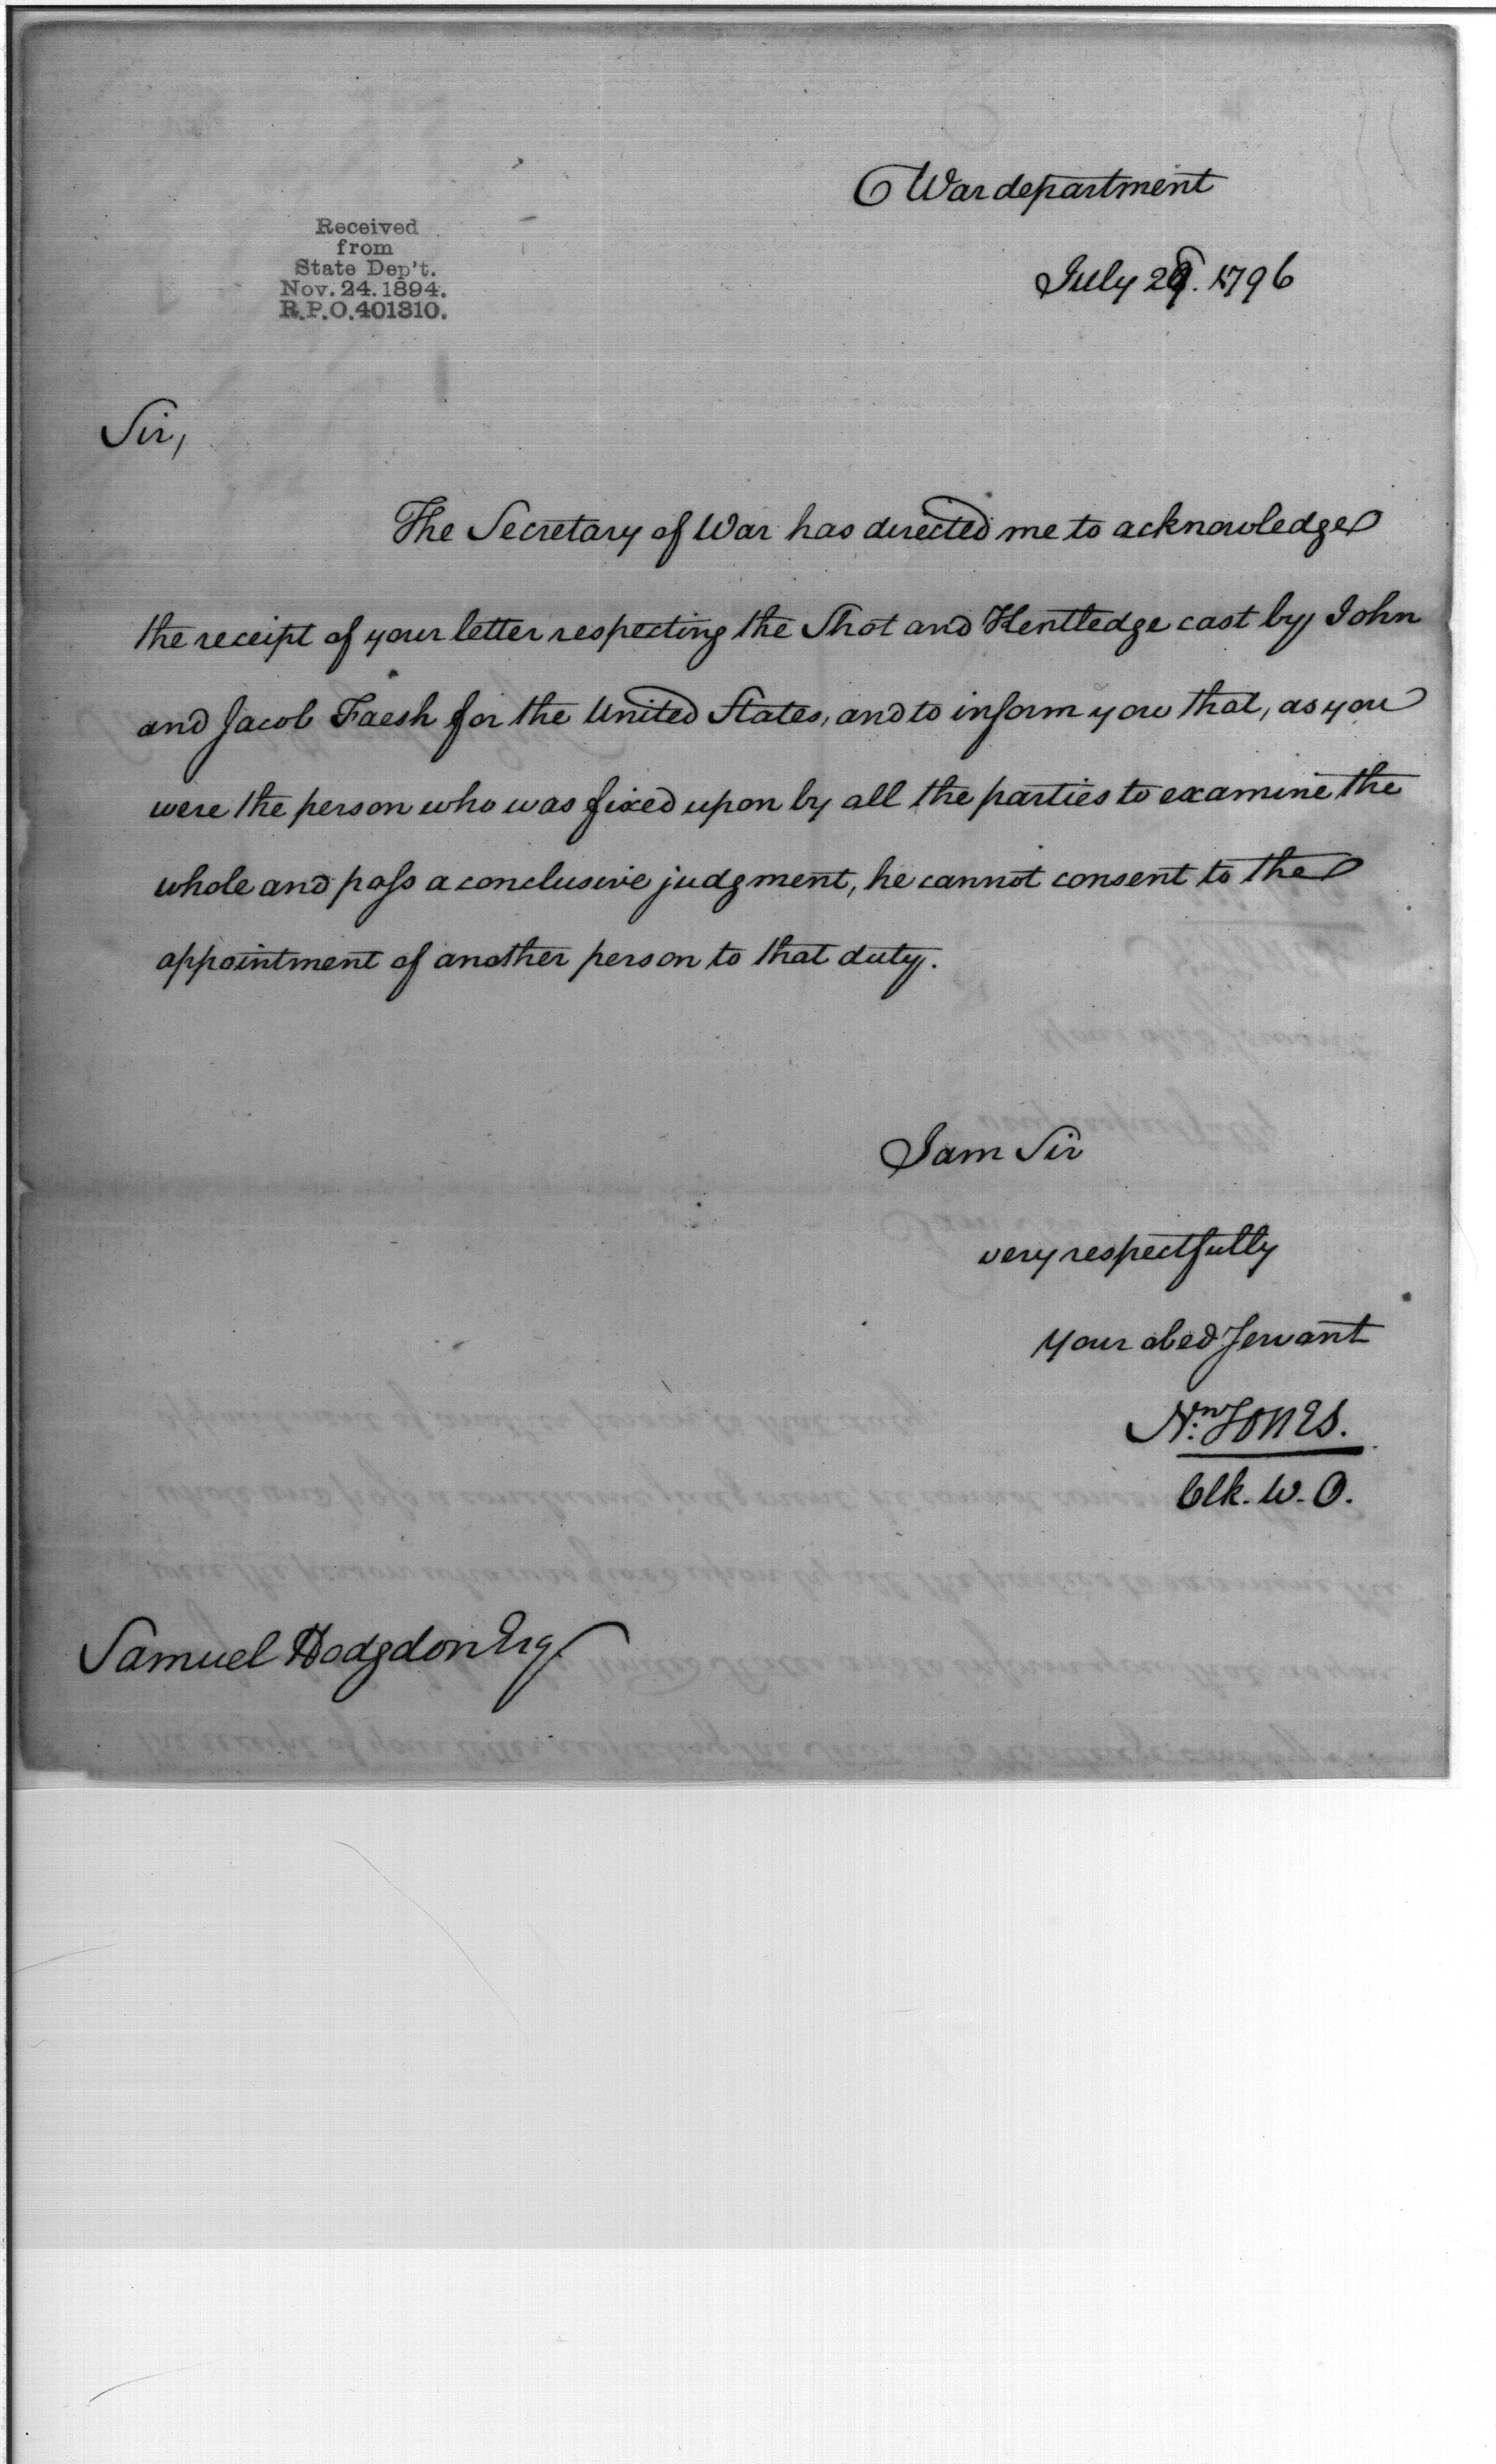 War department
July 29. 1796
Received
from
State Dep't.
Nov. 24. 1894.
R.P.O. 401310.
Sir,
The Secretary of War has directed me to acknowledge
the receipt of your letter respecting the Shot and Kentledge cast by John
and Jacob Faesh for the United States, and to inform you that, as you
were the person who was fixed upon by all the parties to examine the
whole and pass a conclusive judgment, he cannot consent to the
appointment of another person to that duty.
I am Sir
very respectfully
Your obed Servant
Nn. Jones.
Clk. W. O.
Samuel Hodgdon Esqr